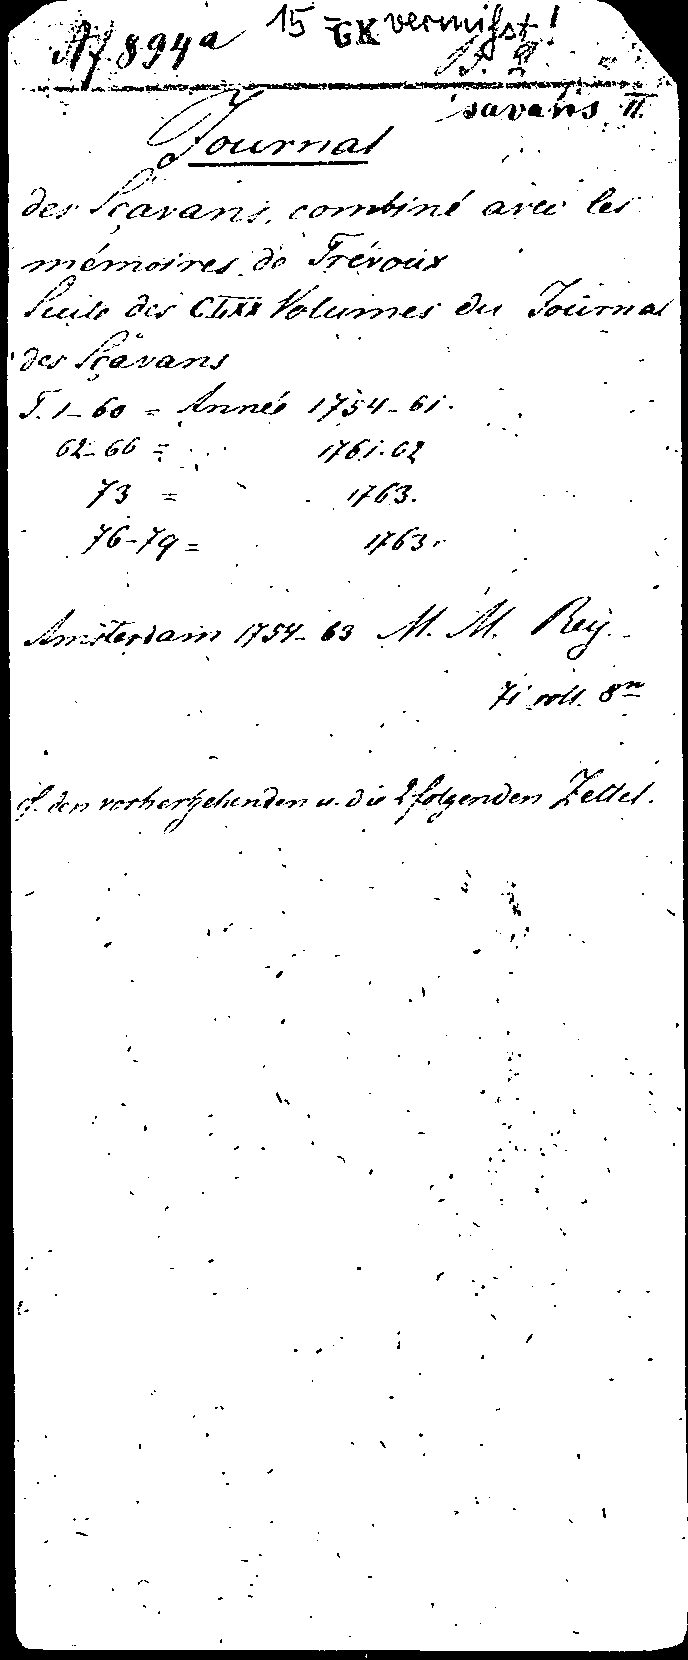 Af. 894a 15 GK vermißt!
savans II.
Journal
des Sçavans, combiné avec les
mémoires de Trévoux
Suite des CLXX Volumes du Journal
des Sçavans
T. 1-60 = Année 1754-61.
62-66 = 1761.62
73 = 1763.
76-79 = 1763.
Amsterdam 1754-63 M. M. Rey.
71 voll. 8°
cf. den vorhergehenden u. die 2 folgenden Zettel.